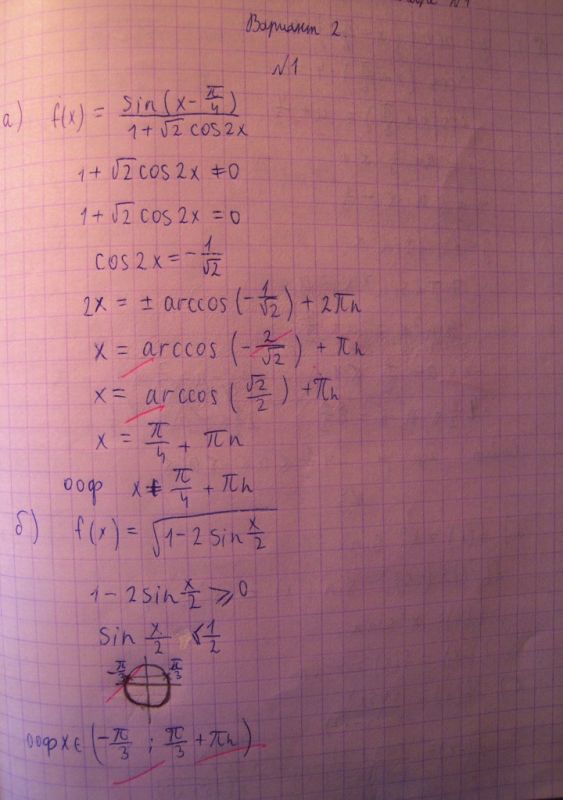 Вариант 2.
№1
а) f(x) = sin(x - π/4) / (1 + √2 cos2x)
1 + √2 cos2x ≠ 0
1 + √2 cos2x = 0
cos2x = - 1/√2
2x = ± arccos(- 1/√2) + 2πn
x = arccos(- 2/√2) + πn
x = arccos(√2/2) + πn
x = π/4 + πn
ооф x ≠ π/4 + πn
б) f(x) = √(1 - 2 sin x/2)
1 - 2 sin x/2 ⩾ 0
sin x/2 ⩽ 1/2
- π/3 π/3
ооф x ∈ (- π/3 ; π/3 + πn)